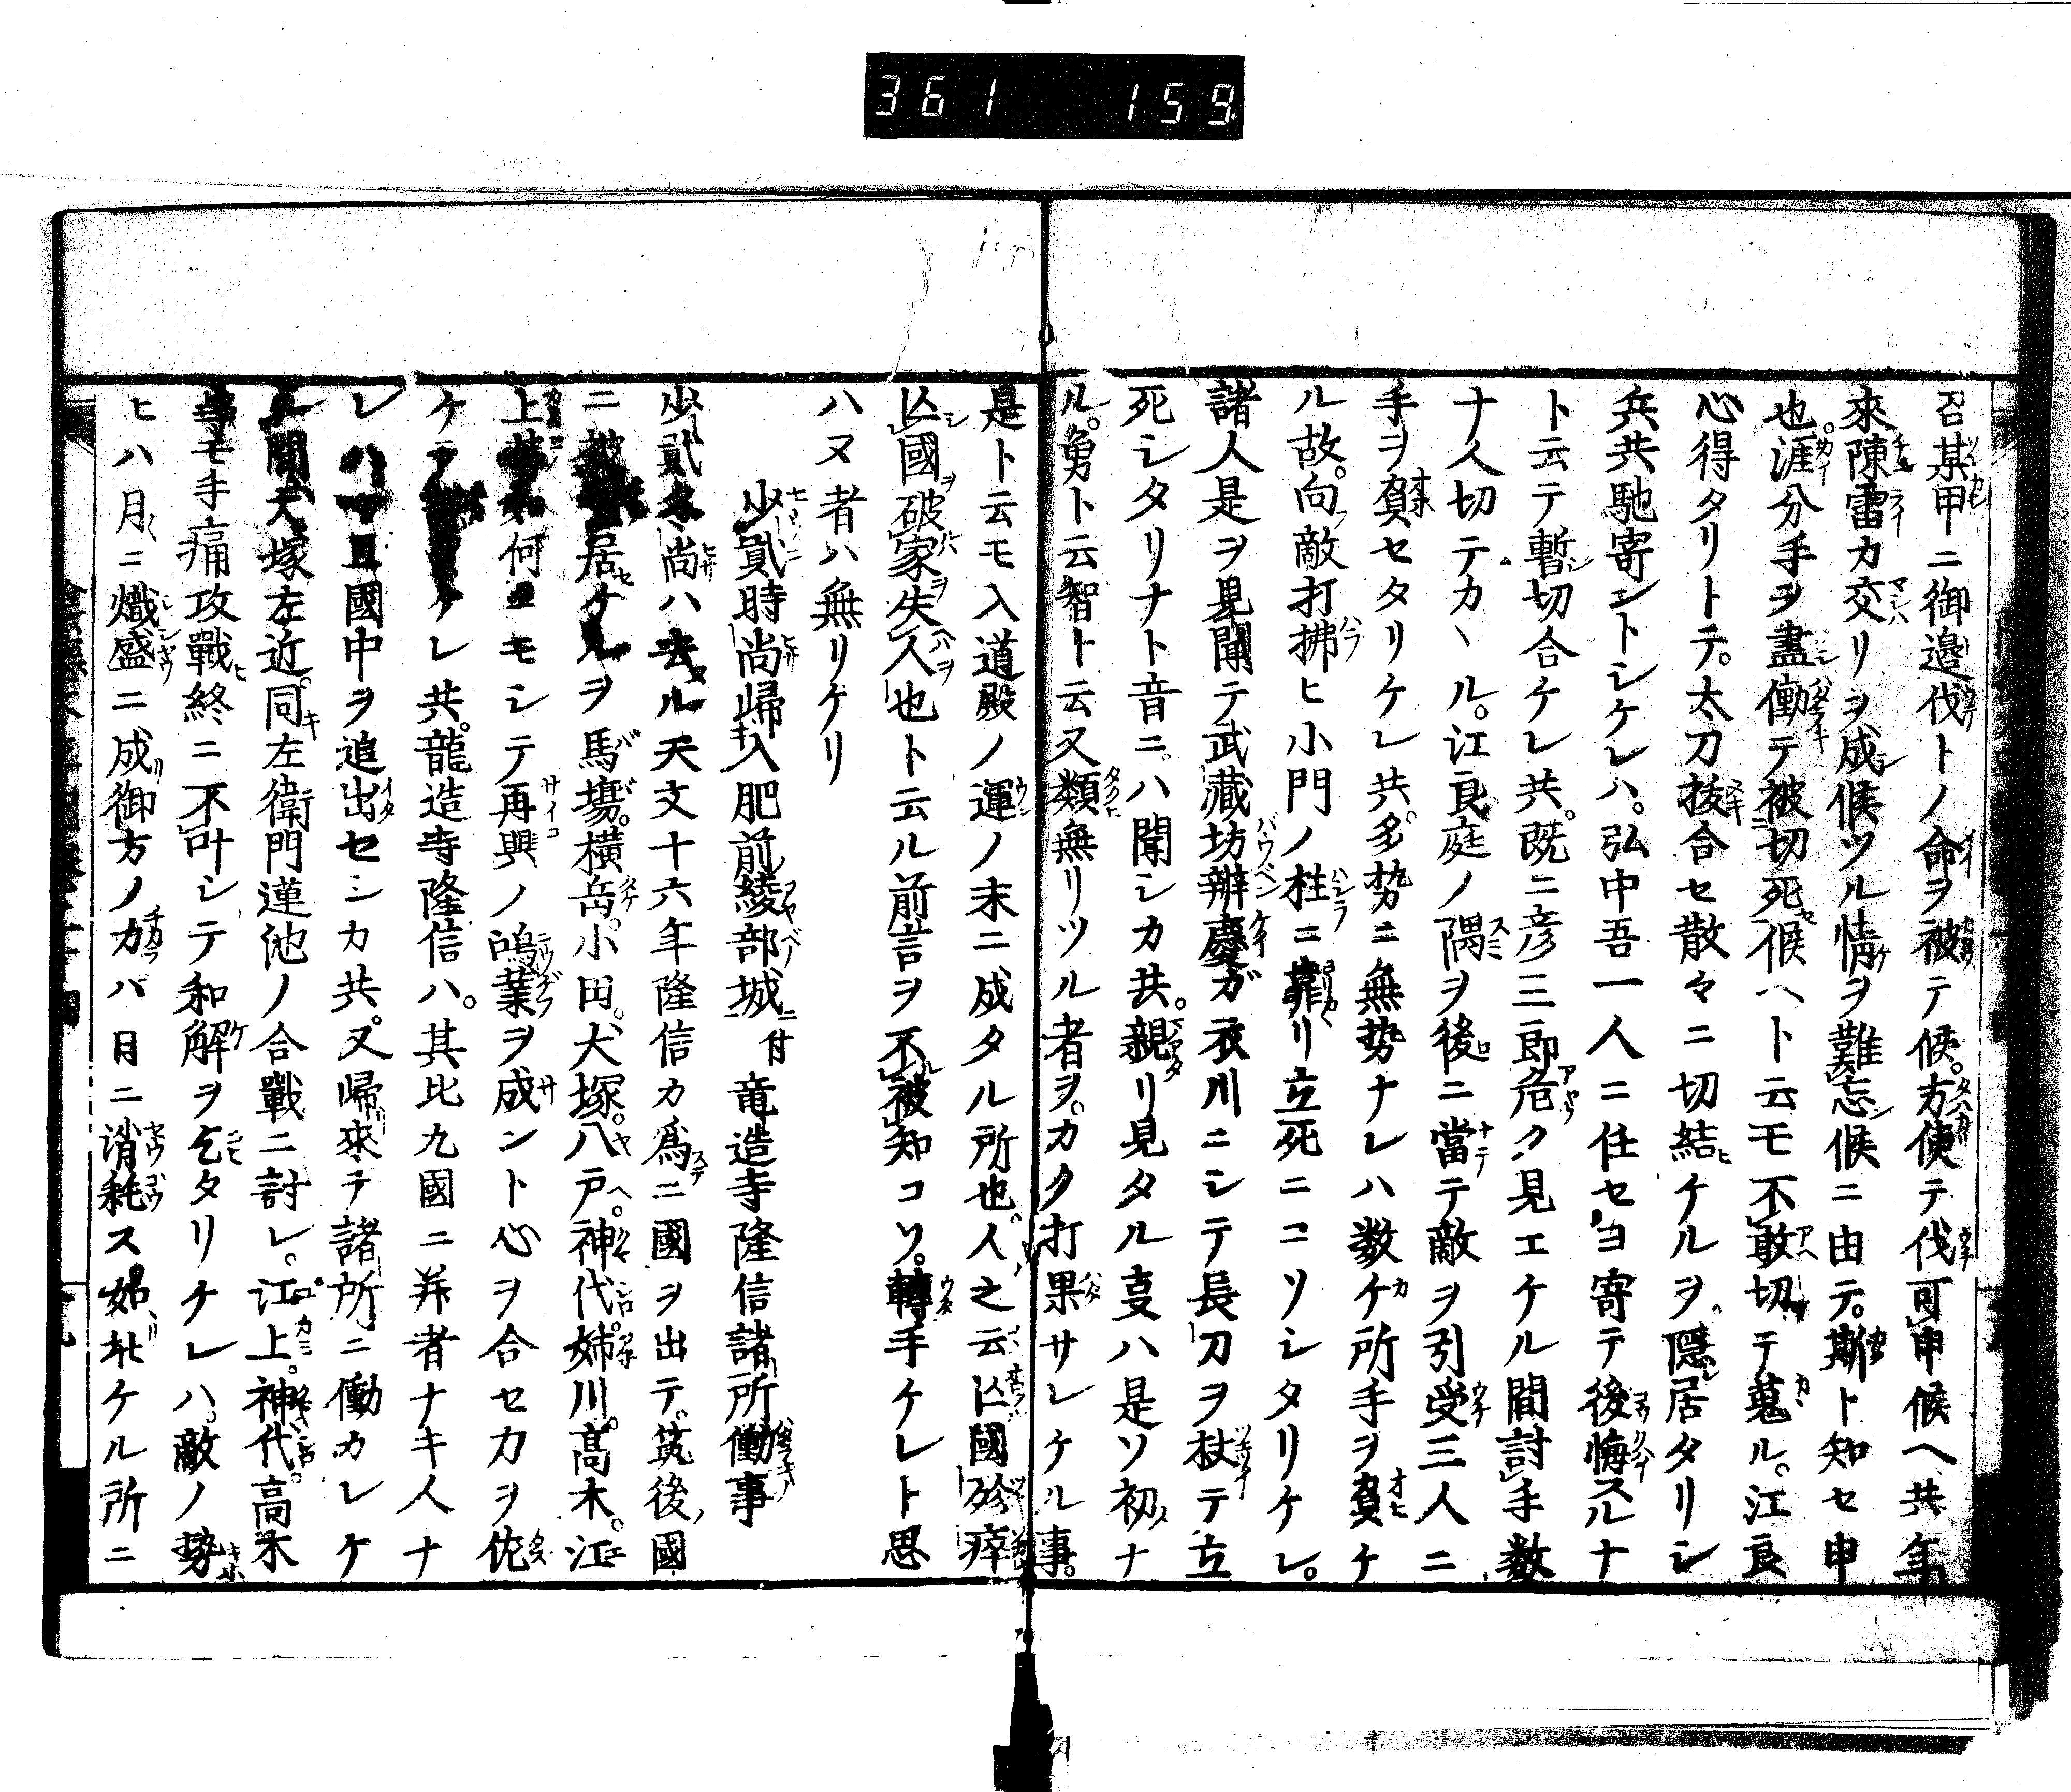 361 159.
召某甲ニ御邉伐トノ命ヲ被テ候。方便テ伐可申候ヘ共年
來陳雷カ交リヲ成候ツル情ヲ難忘候ニ由テ。斯ト知セ申
也。涯分手ヲ盡働テ被切死候ヘト云モ不敢切テ蒐ル。江良
心得タリトテ。太刀抜合セ散々ニ切結ケルヲ。隠居タリシ
兵共馳寄ントシケレハ。弘中吾一人ニ任セヨ寄テ後悔スルナ
ト云テ暫切合ケレ共。既ニ彦三郎危ク見エケル間討手数
十人切テカヽル。江良庭ノ隅ヲ後ニ當テ敵ヲ引受三人ニ
手ヲ負セタリケレ共。多勢ニ無勢ナレハ数ケ所手ヲ負ケ
ル故。向敵打拂ヒ小門ノ柱ニ靠リ立死ニコソシタリケレ。
諸人是ヲ見聞テ武藏坊辨慶ガ衣川ニシテ長刀ヲ杖テ立
死シタリナト音ニハ聞シカ共。親リ見タル叓ハ是ソ初ナ
ル。勇ト云智ト云又類無リツル者ヲ。カク打果サレケル事。
是ト云モ入道殿ノ運ノ末ニ成タル所也。人之云亡國殄瘁
亡國破家失人也ト云ル前言ヲ不被知コソ。轉手ケレト思
ハヌ者ハ無リケリ
少貳時尚歸入肥前綾部城ニ付竜造寺隆信諸所働事
少貳尚ハ去ル天文十六年隆信カ爲ニ國ヲ出テ。筑後國
ニ居ケルヲ馬塲。横岳。小田。犬塚。八戸。神代。姉川。髙木。江
上何モシテ再興ノ鴻業ヲ成ント心ヲ合セカヲ佗
ケレ共。龍造寺隆信ハ。其比九國ニ并者ナキ人ナ
レハ國中ヲ追出セシカ共。又歸來テ諸所ニ働カレケ
ル間犬塚左近。同左衛門蓮池ノ合戰ニ討レ。江上。神代。高木
等モ手痛攻戰終ニ不叶シテ和解ヲ乞タリケレハ。敵ノ勢
ヒハ月ニ熾盛ニ成御方ノ力バ日ニ消耗ス。如此ケル所ニ